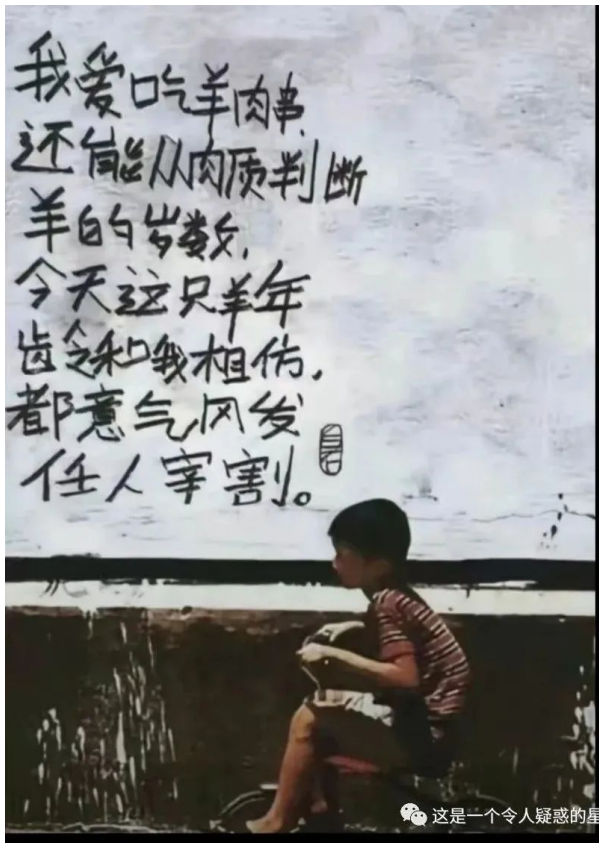 我爱吃羊肉串,
还能从肉质判断
羊的岁数,
今天这只羊年
龄和我相仿,
都意气风发
任人宰割。
这是一个令人疑惑的星